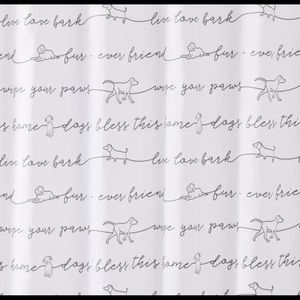 live love bark live love bark
end fur - ever friend fur - ever friend
wipe your paws wipe your paws
s home dogs bless this home dogs bless this
live love bark live love bark
nd fur - ever friend fur - ever friend
wipe your paws wipe your paws
s home dogs bless this home dogs bless this